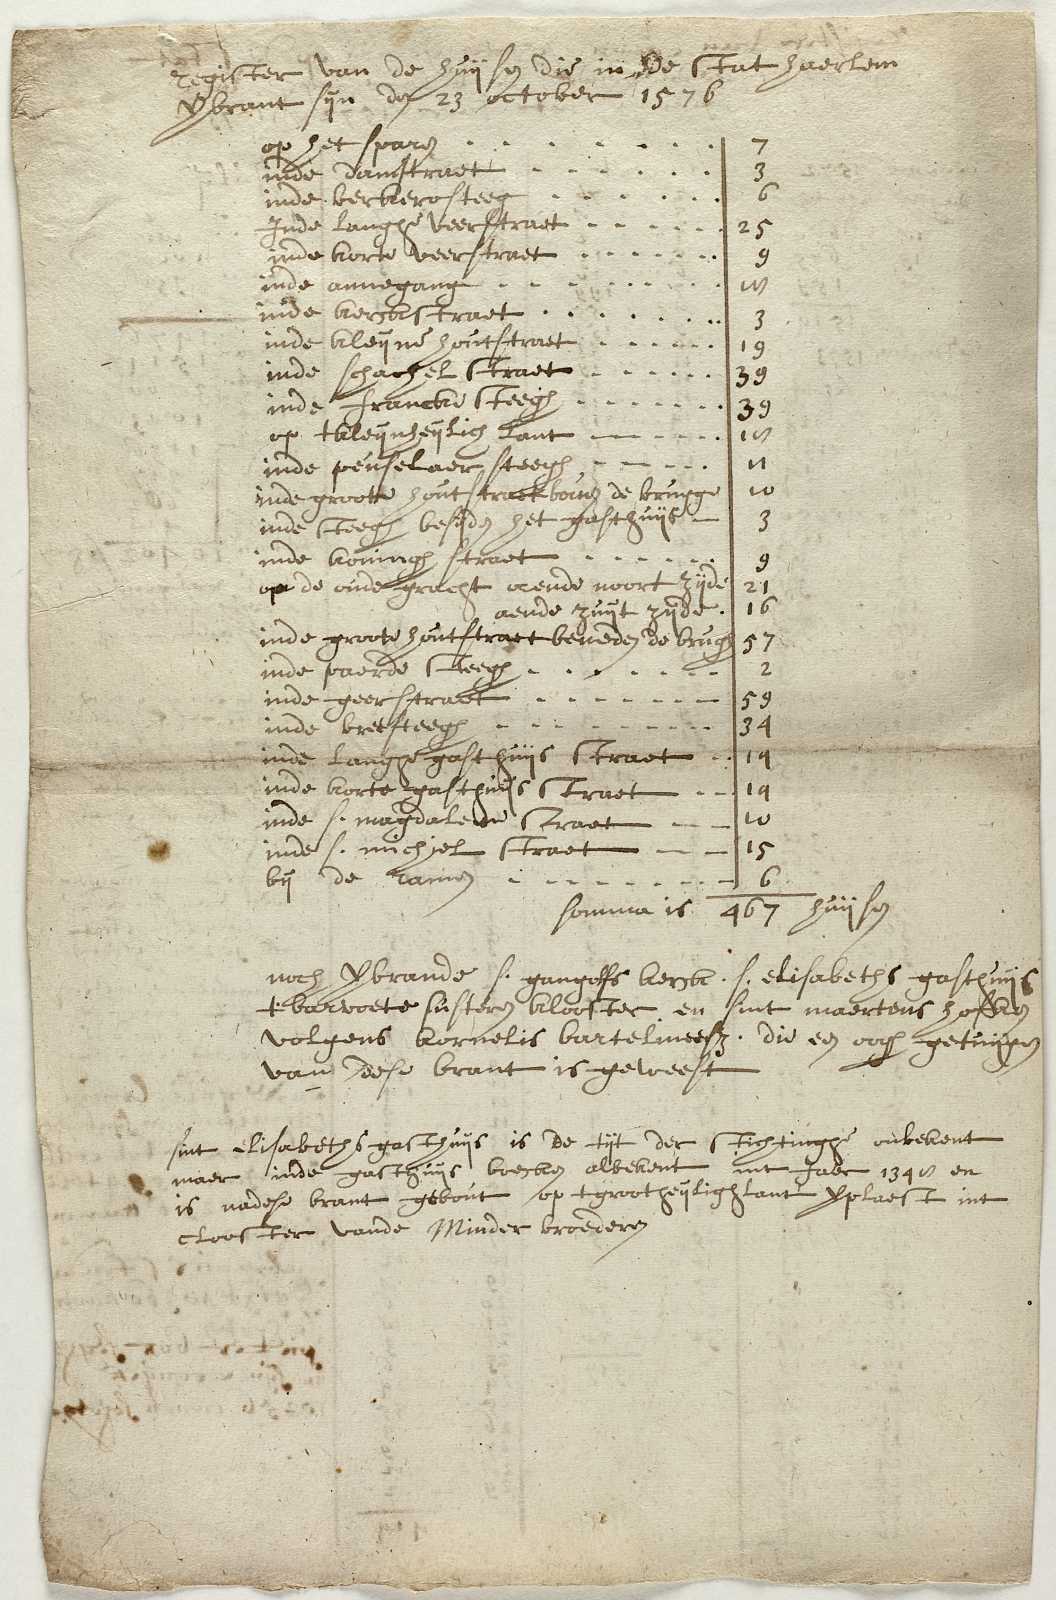 register van de huijsen die in de stat haerlem
ÿbrant sijn den 23 october 1576
op het sparen 7
inde damstraet 3
inde berkerosteeg 6
Inde langhe veerstraet 25
inde korte veerstraet 9
inde annegang
inde kerckstraet 3
inde kleijne houtstraet 19
inde schachel straet 39
inde francke steegh 39
op t kleijn heijligh lant
inde peuselaer steegh 11
inde groote houtstraet boven de brugge 10
inde steegh besijden het gasthuijs 3
inde koningh straet 9
op de oude gracht aende noort zijde 21
aende zuijt zijde 16
inde groote houtstraet beneden de brugh 57
inde paerde steegh 2
inde geerstraet 59
inde breesteegh 34
inde langhe gasthuijs straet 19
inde korte gasthuijs straet 19
inde s. magdalene straet 10
inde s. michiel straet 15
bij de ramen 6
somma is 467 huijsen
noch ÿbrande s. gangolfs kerck. s. elisabeths gasthuijs
t barvoete susteren klooster en sint maertens hofken
volgens kornelis bartelmeesz. die een oogh getuijgen
van dese brant is geweest
sint elisabeths gasthuijs is de tijt der stichtinghe onbekent
maer inde gasthuijs boecken al bekent int Jaer en
is nadese brant gebout op t groot heijligh lant ÿplaest int
clooster vande Minder broederen